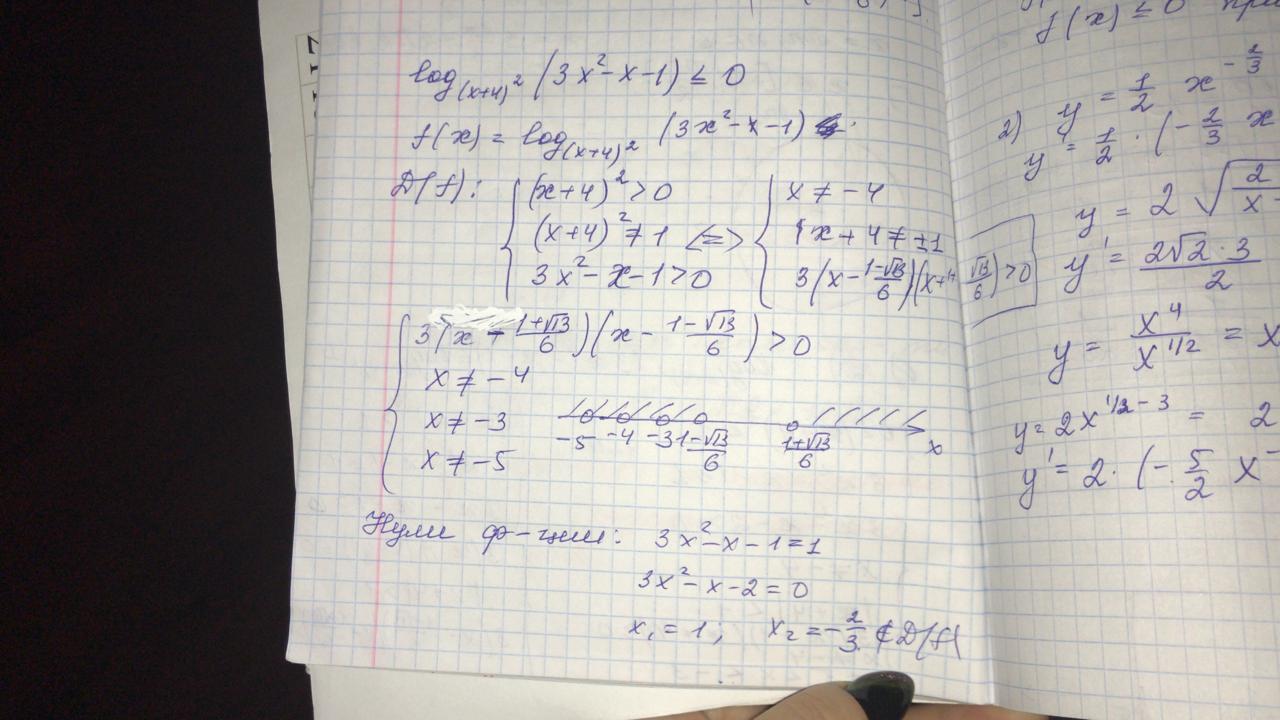 log_(x+4)² (3x² - x - 1) ≤ 0
f(x) = log_(x+4)² (3x² - x - 1)
D(f): { (x+4)² > 0 { x ≠ -4
(x+4)² ≠ 1 <=> x + 4 ≠ ±1
3x² - x - 1 > 0 3(x - (1-√13)/6)(x+ √13/6) > 0
{ 3(x - (1+√13)/6)(x - (1-√13)/6) > 0
x ≠ -4
x ≠ -3
x ≠ -5
-5 -4 -3 (1-√13)/6 (1+√13)/6 x
Нули ф-ции: 3x² - x - 1 = 1
3x² - x - 2 = 0
x₁ = 1; x₂ = -2/3 ∉ D(f)
f(x) ≤ 0 при
2) y = 1/2 x^(-2/3)
y' = 1/2 · (-2/3 x
y = 2 √(2/x-
y' = (2√2 · 3)/2
y = x⁴/x^(1/2) = x
y = 2x^(1/2 - 3) = 2
y' = 2 · (-5/2 x⁻